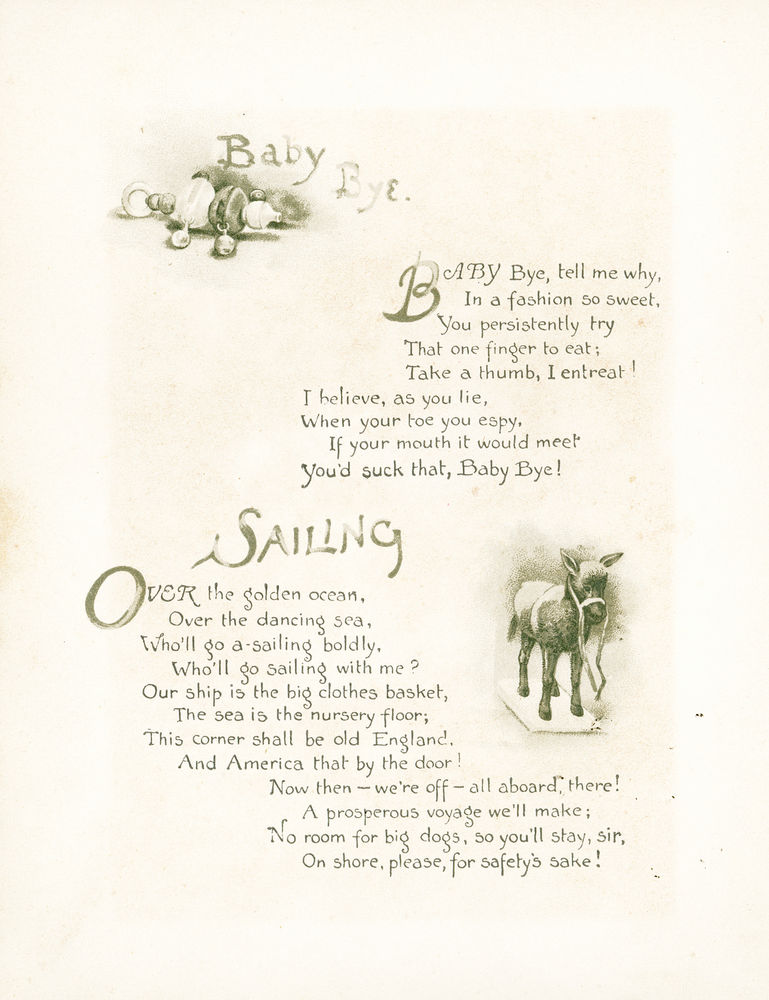 Baby Bye.
BABY Bye, tell me why,
In a fashion so sweet,
You persistently try
That one finger to eat;
Take a thumb, I entreat!
I believe, as you lie,
When your toe you espy,
If your mouth it would meet
You'd suck that, Baby Bye!
SAILING
OVER the golden ocean,
Over the dancing sea,
Who'll go a-sailing boldly,
Who'll go sailing with me?
Our ship is the big clothes basket,
The sea is the nursery floor;
This corner shall be old England,
And America that by the door!
Now then – we're off – all aboard, there!
A prosperous voyage we'll make;
No room for big dogs, so you'll stay, sir,
On shore, please, for safety's sake!